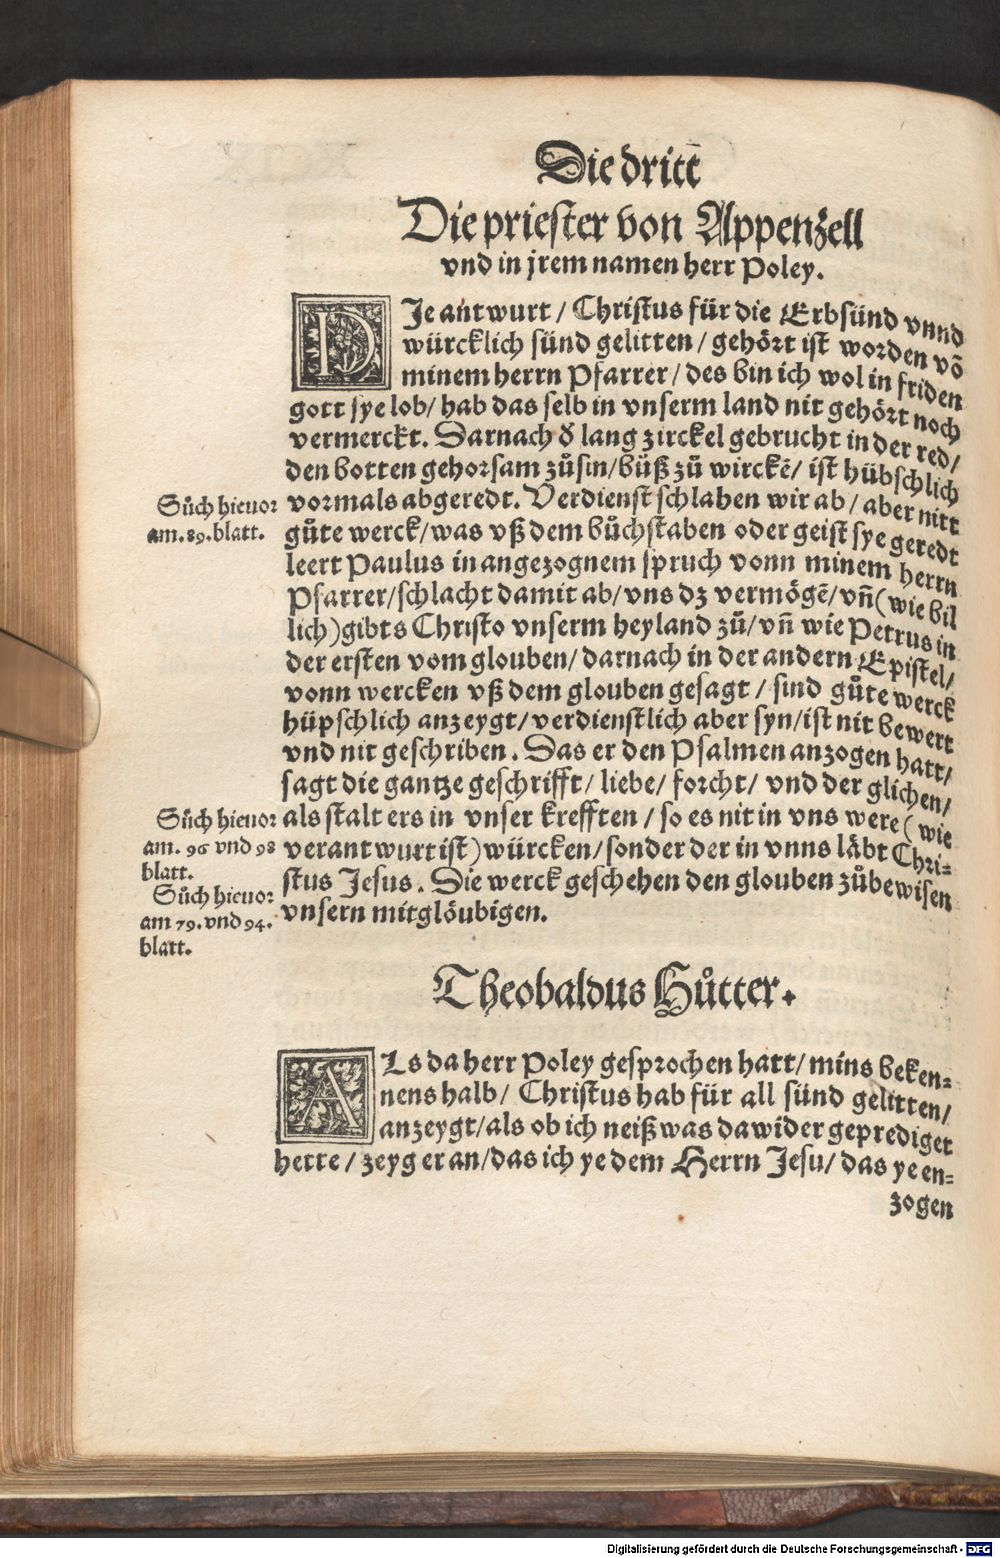 Die dritt
Die priester von Appenzell
vnd in jrem namen herr Poley.
DJe antwurt / Christus für die Erbsünd vnnd
würcklich sünd gelitten / gehört ist worden võ
minem herrn Pfarrer / des bin ich wol in friden
gott sye lob / hab das selb in vnserm land nit gehört noch
vermerckt. Darnach d̕ lang zirckel gebrucht in der red /
den botten gehorsam zů sin / bůß zů wirckẽ / ist hübschlich
vormals abgeredt. Verdienst schlahen wir ab / aber nitt
gůte werck / was vß dem bůchstaben oder geist sye geredt
leert Paulus in angezognem spruch vonn minem herrn
Pfarrer / schlacht damit ab / vns dz vermögẽ / vñ (wie bil
lich) gibts Christo vnserm heyland zů / vñ wie Petrus in
der ersten vom glouben / darnach in der andern Epistel /
vonn wercken vß dem glouben gesagt / sind gůte werck
hüpschlich anzeygt / verdienstlich aber syn / ist nit bewert
vnd nit geschriben. Das er den Psalmen anzogen hatt /
sagt die gantze geschrifft / liebe / forcht / vnd der glichen /
als stalt ers in vnser krefften / so es nit in vns were (wie
verantwurt ist) würcken / sonder der in vnns läbt Chri-
stus Jesus. Die werck geschehen den glouben zů bewisen
vnsern mitglöubigen.
Sůch hieuor
am. 89. blatt.
Sůch hieuor
am. 96 vnd 98
blatt.
Sůch hieuor
am 79. vnd 94.
blatt.
Theobaldus Hůtter.
ALs da herr Poley gesprochen hatt / mins beken-
nens halb / Christus hab für all sünd gelitten /
anzeygt / als ob ich neißwas dawider geprediget
hette / zeyg er an / das ich ye dem Herrn Jesu / das ye en-
zogen
Digitalisierung gefördert durch die Deutsche Forschungsgemeinschaft - DFG